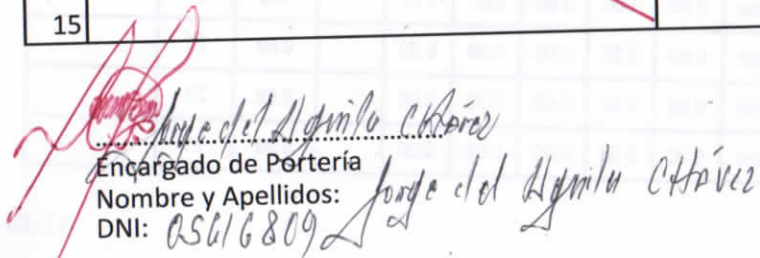 15
Jorge del Aguila CHávez
Encargado de Portería
Nombre y Apellidos: Jorge del Aguila CHávez
DNI: 05616809